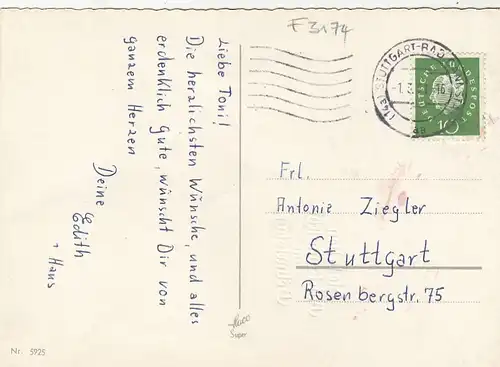 F 3174
Liebe Toni!
Die herzlichsten Wünsche, und alles
erdenklich Gute, wünscht Dir von
ganzem Herzen
Deine
Edith
+ Hans
DEUTSCHE BUNDESPOST
10
Frl.
Antonie Ziegler
Stuttgart
Rosenbergstr. 75
Super
Nr. 5925